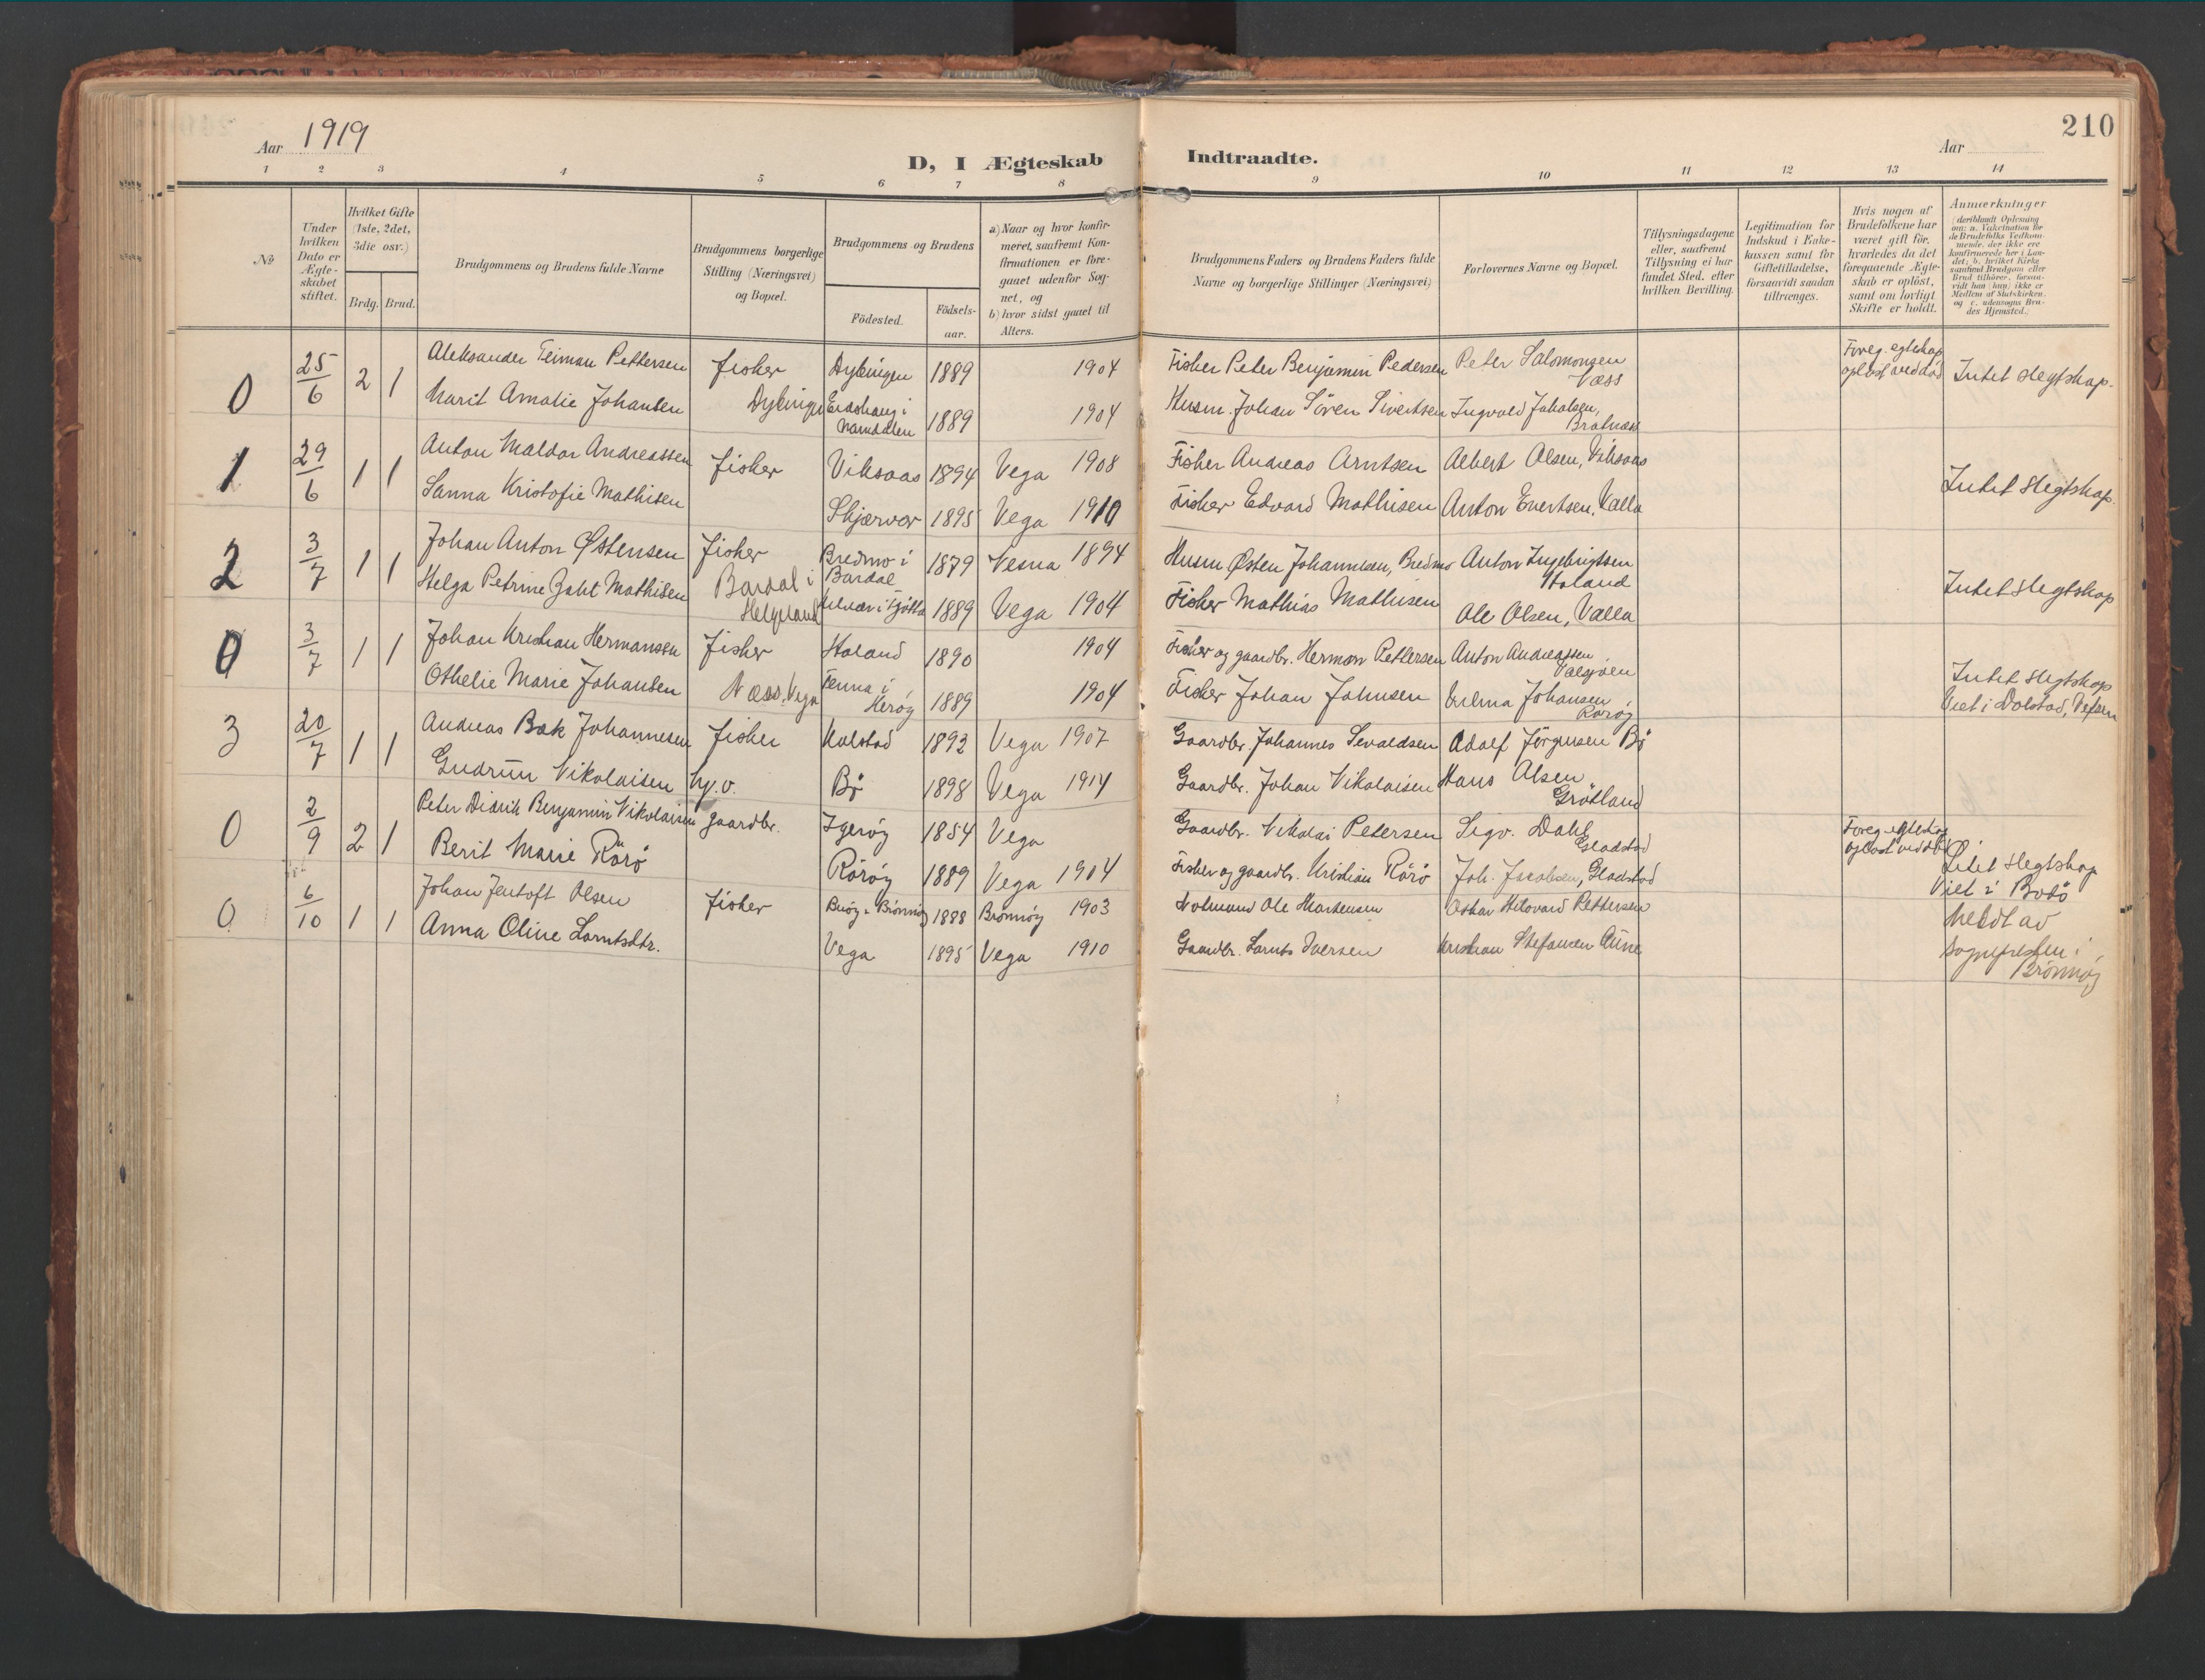 Aar 1919
D, I Ægteskab
Indtraadte.
Aar
210
1 2 3 4 5 6 7 8 9 10 11 12 13 14
No
Under hvilken Dato er Ægte-skabet stiftet.
Hvilket Gifte (1ste, 2det, 3die osv.)
Brdg. Brud.
Brudgommens og Brudens fulde Navne
Brudgommens borgerlige Stilling (Næringsvei) og Bopæl.
Brudgommens og Brudens
Födested.
Födsels-aar.
a) Naar og hvor konfir-meret, saafremt Kon-firmationen er fore-gaaet udenfor Sog-net, og
b) hvor sidst gaaet til Alters.
Brudgommens Faders og Brudens Faders fulde Navne og borgerlige Stillinger (Næringsvei)
Forlovernes Navne og Bopæl.
Tillysningsdagene eller, saafremt Tillysning ei har fundet Sted, efter hvilken Bevilling.
Legitimation for Indskud i Enke-kassen samt for Giftetilladelse, forsaavidt saadan tiltrænges.
Hvis nogen af Brudefolkene har været gift för, hvorledes da det foregaaende Ægte-skab er oplöst, samt om lovligt Skifte er holdt.
Anmærkninger (deriblandt Oplysning om: a. Vakcination for de Brudefolks Vedkom-mende, der ikke ere konfirmerede her i Lan-det; b. hvilket Kirke-samfund Brudgom eller Brud tilhörer, forsaa-vidt han (hun) ikke er Medlem af Statskirken, og c. udensogns Bru-des Hjemsted.)
0 25/6 2 1 Aleksander Teiman Pettersen fisher Dybingen 1889 1904 Fisher Peter Benjamin Pedersen Peter Salomonsen Næss Foreg. egteskap oplöst ved död Intet slegtskap.
Marit Amalie Johansen Dybingen i Namdalen 1889 1904 Husm. Johan Sören Sivertsen Ingvald Jakobsen,
1 29/6 1 1 Anton Maldor Andreassen fisher Viksaas 1894 Vega 1908 Fisher Andreas Arntsen Albert Olsen, Viksaas Intet slegtskap.
Sanna Kristofie Mathisen Skjærvær 1895 Vega 1910 Fisher Edvard Mathisen Anton Evertsen, Valla
2 3/7 1 1 Johan Anton Østensen fisher Bardal i Helgeland Bredmo i Bardal 1879 Nesna 1894 Husm Østen Johannesen, Bredmo Anton Ingebrigtsen Holand Intet slegtskap
Helga Petrine Mathisen i Tjötta 1889 Vega 1904 Fisher Mathias Mathisen Ole Olsen, Valla
0 3/7 1 1 Johan Kristian Hermansen fisher Næss. Vega Holand 1890 1904 Fisher og gaardbr. Herman Pettersen Anton Andreassen Intet slegtskap
Othelie Marie Johansen Tenna i Heröy 1889 1904 Fisher Johan Johnsen Johansen Röröy Viet i Dolstad, Vefsen
3 20/7 1 1 Andreas Bak Johannesen fisher Kolstad 1892 Vega 1907 Gaardbr. Johannes Sevaldsen Adolf Jörgensen Bö
Gudrun Nikolaisen Bö 1898 Vega 1914 Gaardbr. Johan Nikolaisen Hans Olsen Grötland
0 2/9 2 1 Peter Didrik Benjamin Nikolaisen gaardbr. Igeröy 1854 Vega Gaardbr. Nikolai Petersen Sigv. Dahl Gladstad Foreg. egteskap oplöst ved död Intet slegtskap
Berit Marie Rörö Röröy 1889 Vega 1904 Fisher og gaardbr. Kristian Rörö Joh. Jacobsen, Gladstad Viet i Bodö
0 6/10 1 1 Johan Jentoft Olsen fisher Brönnöy 1888 Brönnöy 1903 Nolmand Ole Mortensen Oskar Hilovard Pettersen meldt av sognepresten i Brönnöy
Anna Oline Lorntsdtr. Vega 1895 Vega 1910 Gaardbr. Lornts Iversen Kristian Stefansen